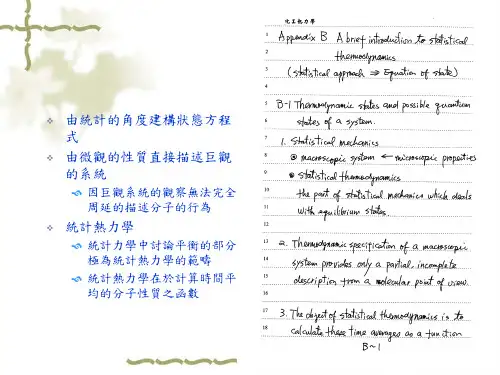 由統計的角度建構狀態方程
式
由微觀的性質直接描述巨觀
的系統
因巨觀系統的觀察無法完全
周延的描述分子的行為
統計熱力學
統計力學中討論平衡的部分
極為統計熱力學的範疇
統計熱力學在於計算時間平
均的分子性質之函數
化工熱力學
1 Appendix B A brief introduction to statistical
2 thermodynamics
3 (statistical approach ⇒ Equation of state)
4
5 B-1 Thermodynamic states and possible quantum
6 states of a system.
7 1. Statistical mechanics
8 @ macroscopic system ← microscopic properties
9 @ statistical thermodynamics
10 the part of statistical mechanics which deals
11 with equilibrium states
12
13 2. Thermodynamic specification of a macroscopic
14 system provides only a partial, incomplete
15 description from a molecular point of view.
16
17 3. The object of statistical thermodynamics is to
18 calculate these time averages as a function
B~1